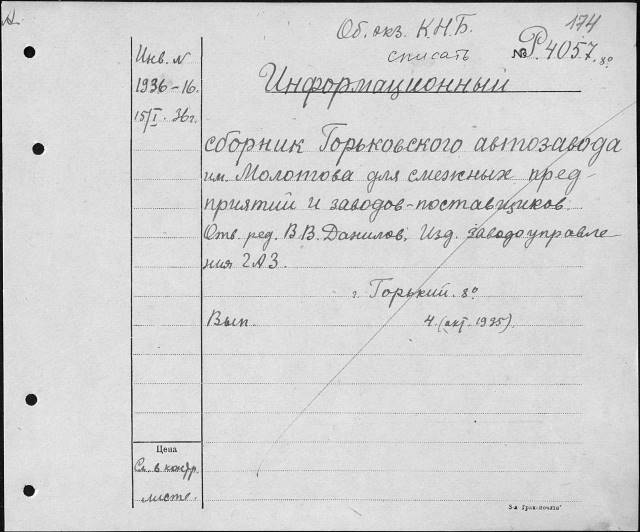 Об. экз. К.Н.Б. 174
списать
№ Р.4057. 8º
Инв. N
1936-16.
15/I. 36г.
Информационный
сборник Горьковского автозавода
им. Молотова для смежных пред-
приятий и заводов-поставщиков.
Отв. ред. В.В. Данилов. Изд. Заводоуправле-
ния ГАЗ.
г. Горький. 8º.
Вып. 4. (окт. 1935).
Цена
См. в контр.
листе.